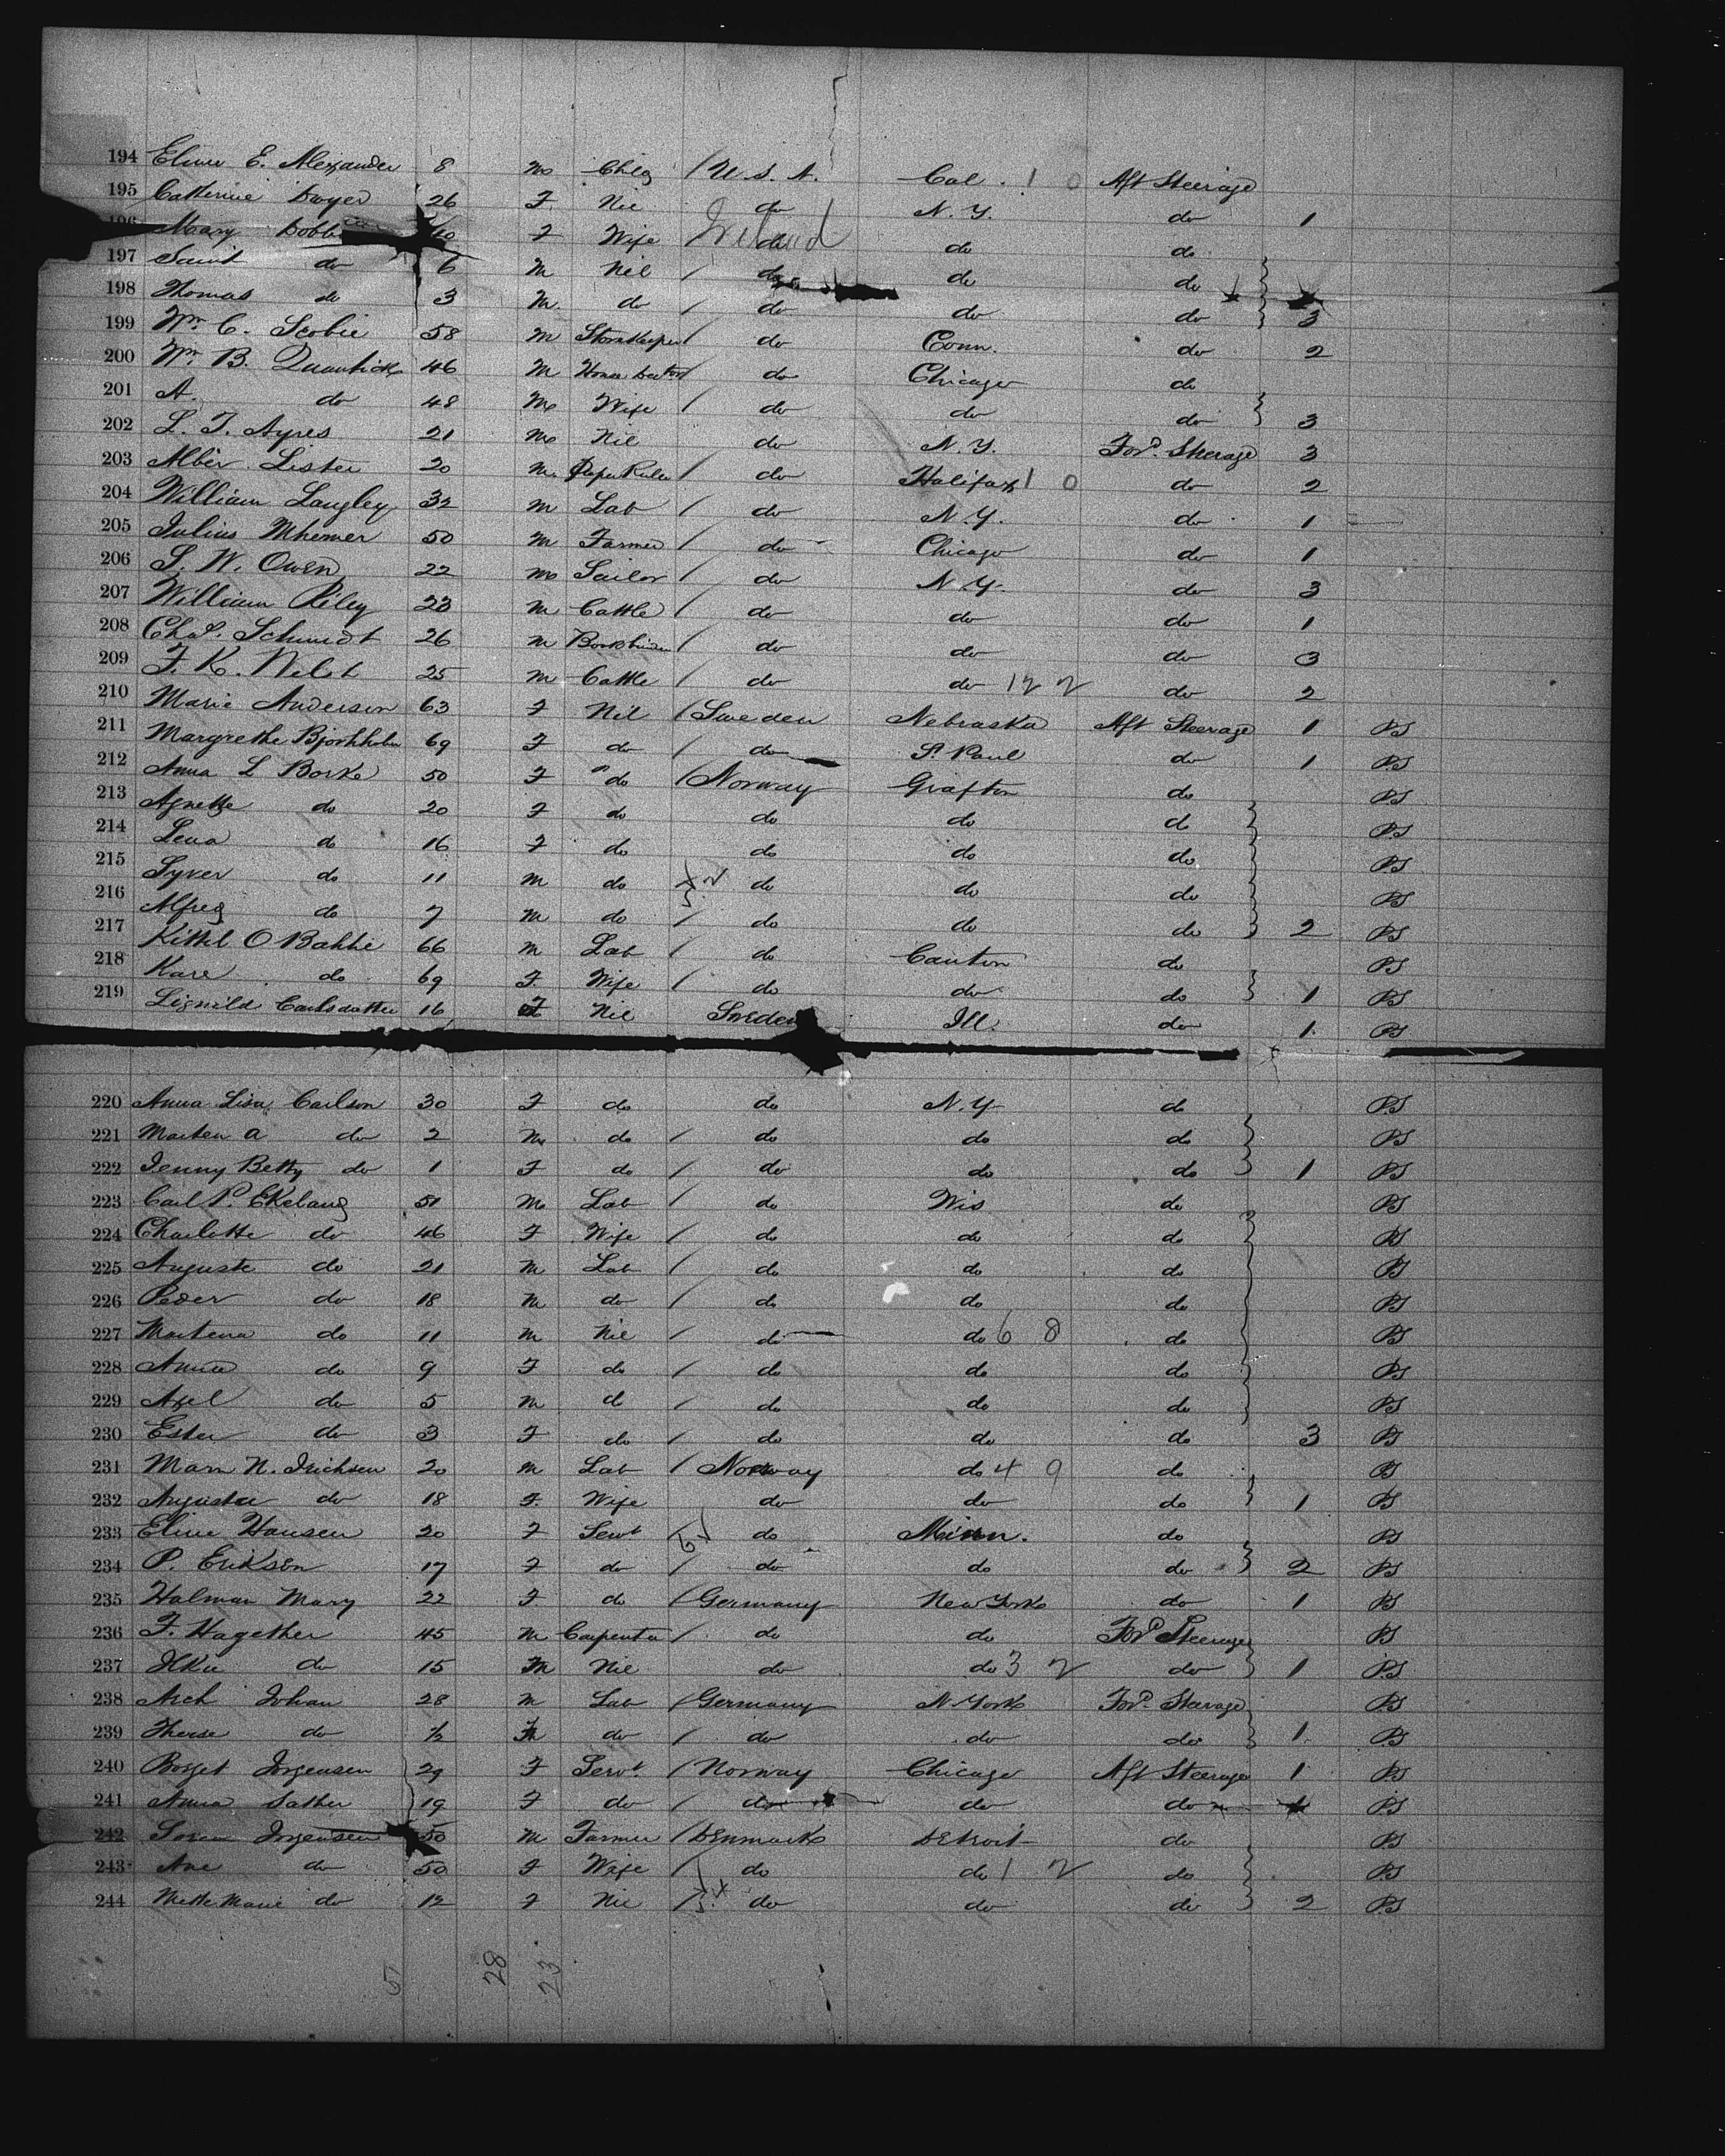 194 Elmer E. Alexander 8 M Child / U.S.A. Cal. 1 0 Aft Steerage
195 Catherine Dwyer 26 F. Nil do N.Y. do 1
196 Mary F Wife / Ireland do do do
197 do 6 M Nil / do do do
198 Thomas do 3 M. do / do do do 3
199 Wm C. Scobie 58 M StoreKeeper / do Conn. do 2
200 Wm B. 46 M / do Chicago do
201 A. do 48 M Wife / do do do 3
202 L. T. Ayres 21 M Nil do N.Y. Ford Steerage 3
203 Lister 20 M Paper Ruler / do Halifax 1 0 do 2
204 William Langley 32 M Lab / do N.Y. do 1
205 Julius Mhemer 50 M Farmer / do Chicago do 1
206 S. W. Owen 22 M Sailor / do N.Y. do 3
207 William Riley 23 M Cattle / do do do 1
208 Chas. Schmidt 26 M Bookbinder / do do do 3
209 F. K. 25 M Cattle / do do 12 2 do 2
210 Marie Anderson 63 F Nil / Sweden Nebraska Aft Steerage 1 PS
211 Margrethe 69 F do / do St Paul do 1 PS
212 Anna L Borke 50 F do / Norway Grafton do PS
213 Agnethe do 20 F do do do do PS
214 Lena do 16 F do do do do PS
215 Syver do 11 M do do do do PS
216 Alfred do 7 M do / do do do 2 PS
217 Kittil O Bakke 66 M Lab / do Canton do PS
218 Kare do 69 F. Wife / do do do 1 PS
219 16 F Nil Sweden Ill. do 1 PS
220 Anna Lisa Carlson 30 F do do N.Y. do PS
221 Marten A do 2 M do / do do do PS
222 Jenny Betty do 1 F do / do do do 1 PS
223 Carl P. Ekeland 51 M Lab / do Wis do PS
224 Charlotte do 46 F Wife / do do do PS
225 Auguste do 21 M Lab / do do do PS
226 Peder do 18 M do / do do do PS
227 do 11 M Nil / do do 6 8 do PS
228 Anna do 9 F do / do do do PS
229 Axel do 5 M do / do do do PS
230 Ester do 3 F do / do do do 3 PS
231 N. 20 M Lab / Norway do 4 9 do PS
232 Augusta do 18 F. Wife do do do 1 PS
233 Eline Hansen 20 F Servt do Minn. do PS
234 P. Erikson 17 F do / do do do 2 PS
235 Halman Mary 22 F. do / Germany New York do 1 PS
236 F. Hagether 45 M Carpenter / do do Ford Steerage PS
237 do 15 M Nil do do 3 2 do 1 PS
238 Johan 28 M Lab / Germany N. York Ford Steerage PS
239 do do / do do do 1 PS
240 Jorgensen 29 F Servt. / Norway Chicago Aft Steerage 1 PS
241 Anna Sather 19 F do / do do do 1 PS
242 Soren Jorgensen 50 M Farmer / Denmark Detroit do PS
243 Ane do 50 F Wife / do do 1 2 do PS
244 Mette Marie do 12 F Nil / do do do 2 PS
5 28 23